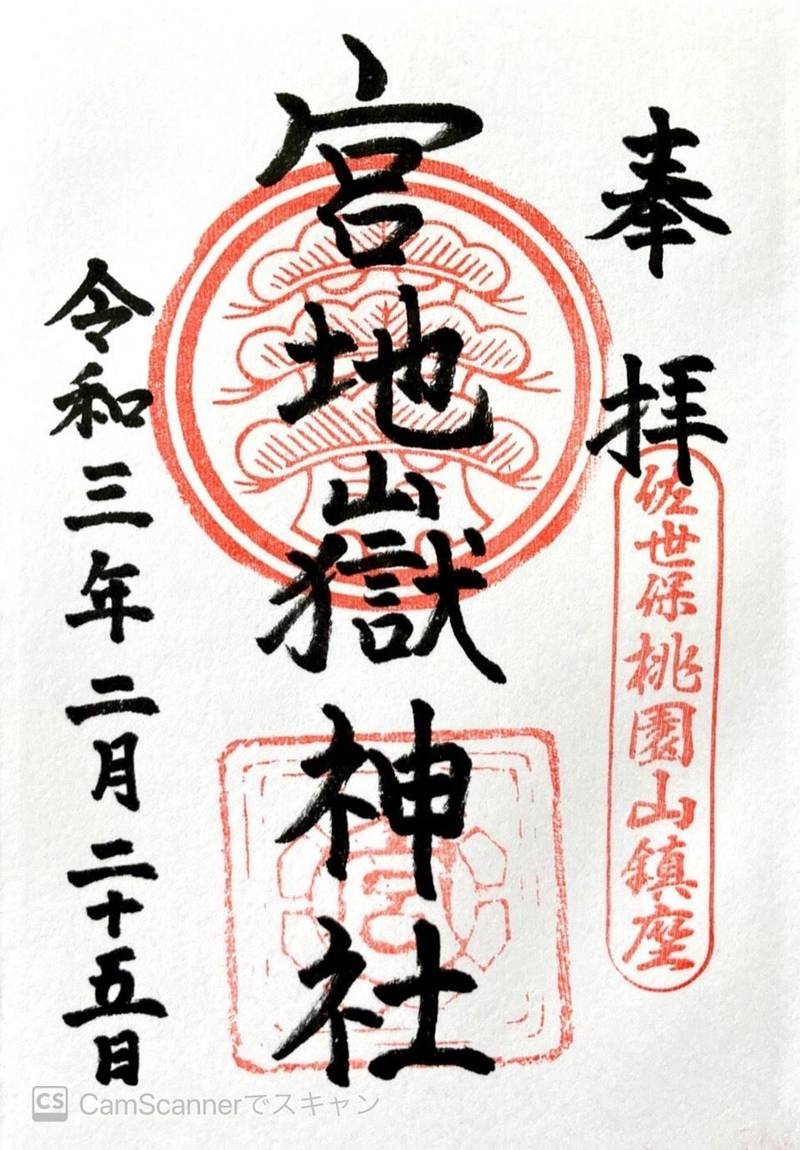 奉拝
佐世保桃園山鎮座
宮地嶽神社
宮
令和三年二月二十五日
CS CamScannerでスキャン